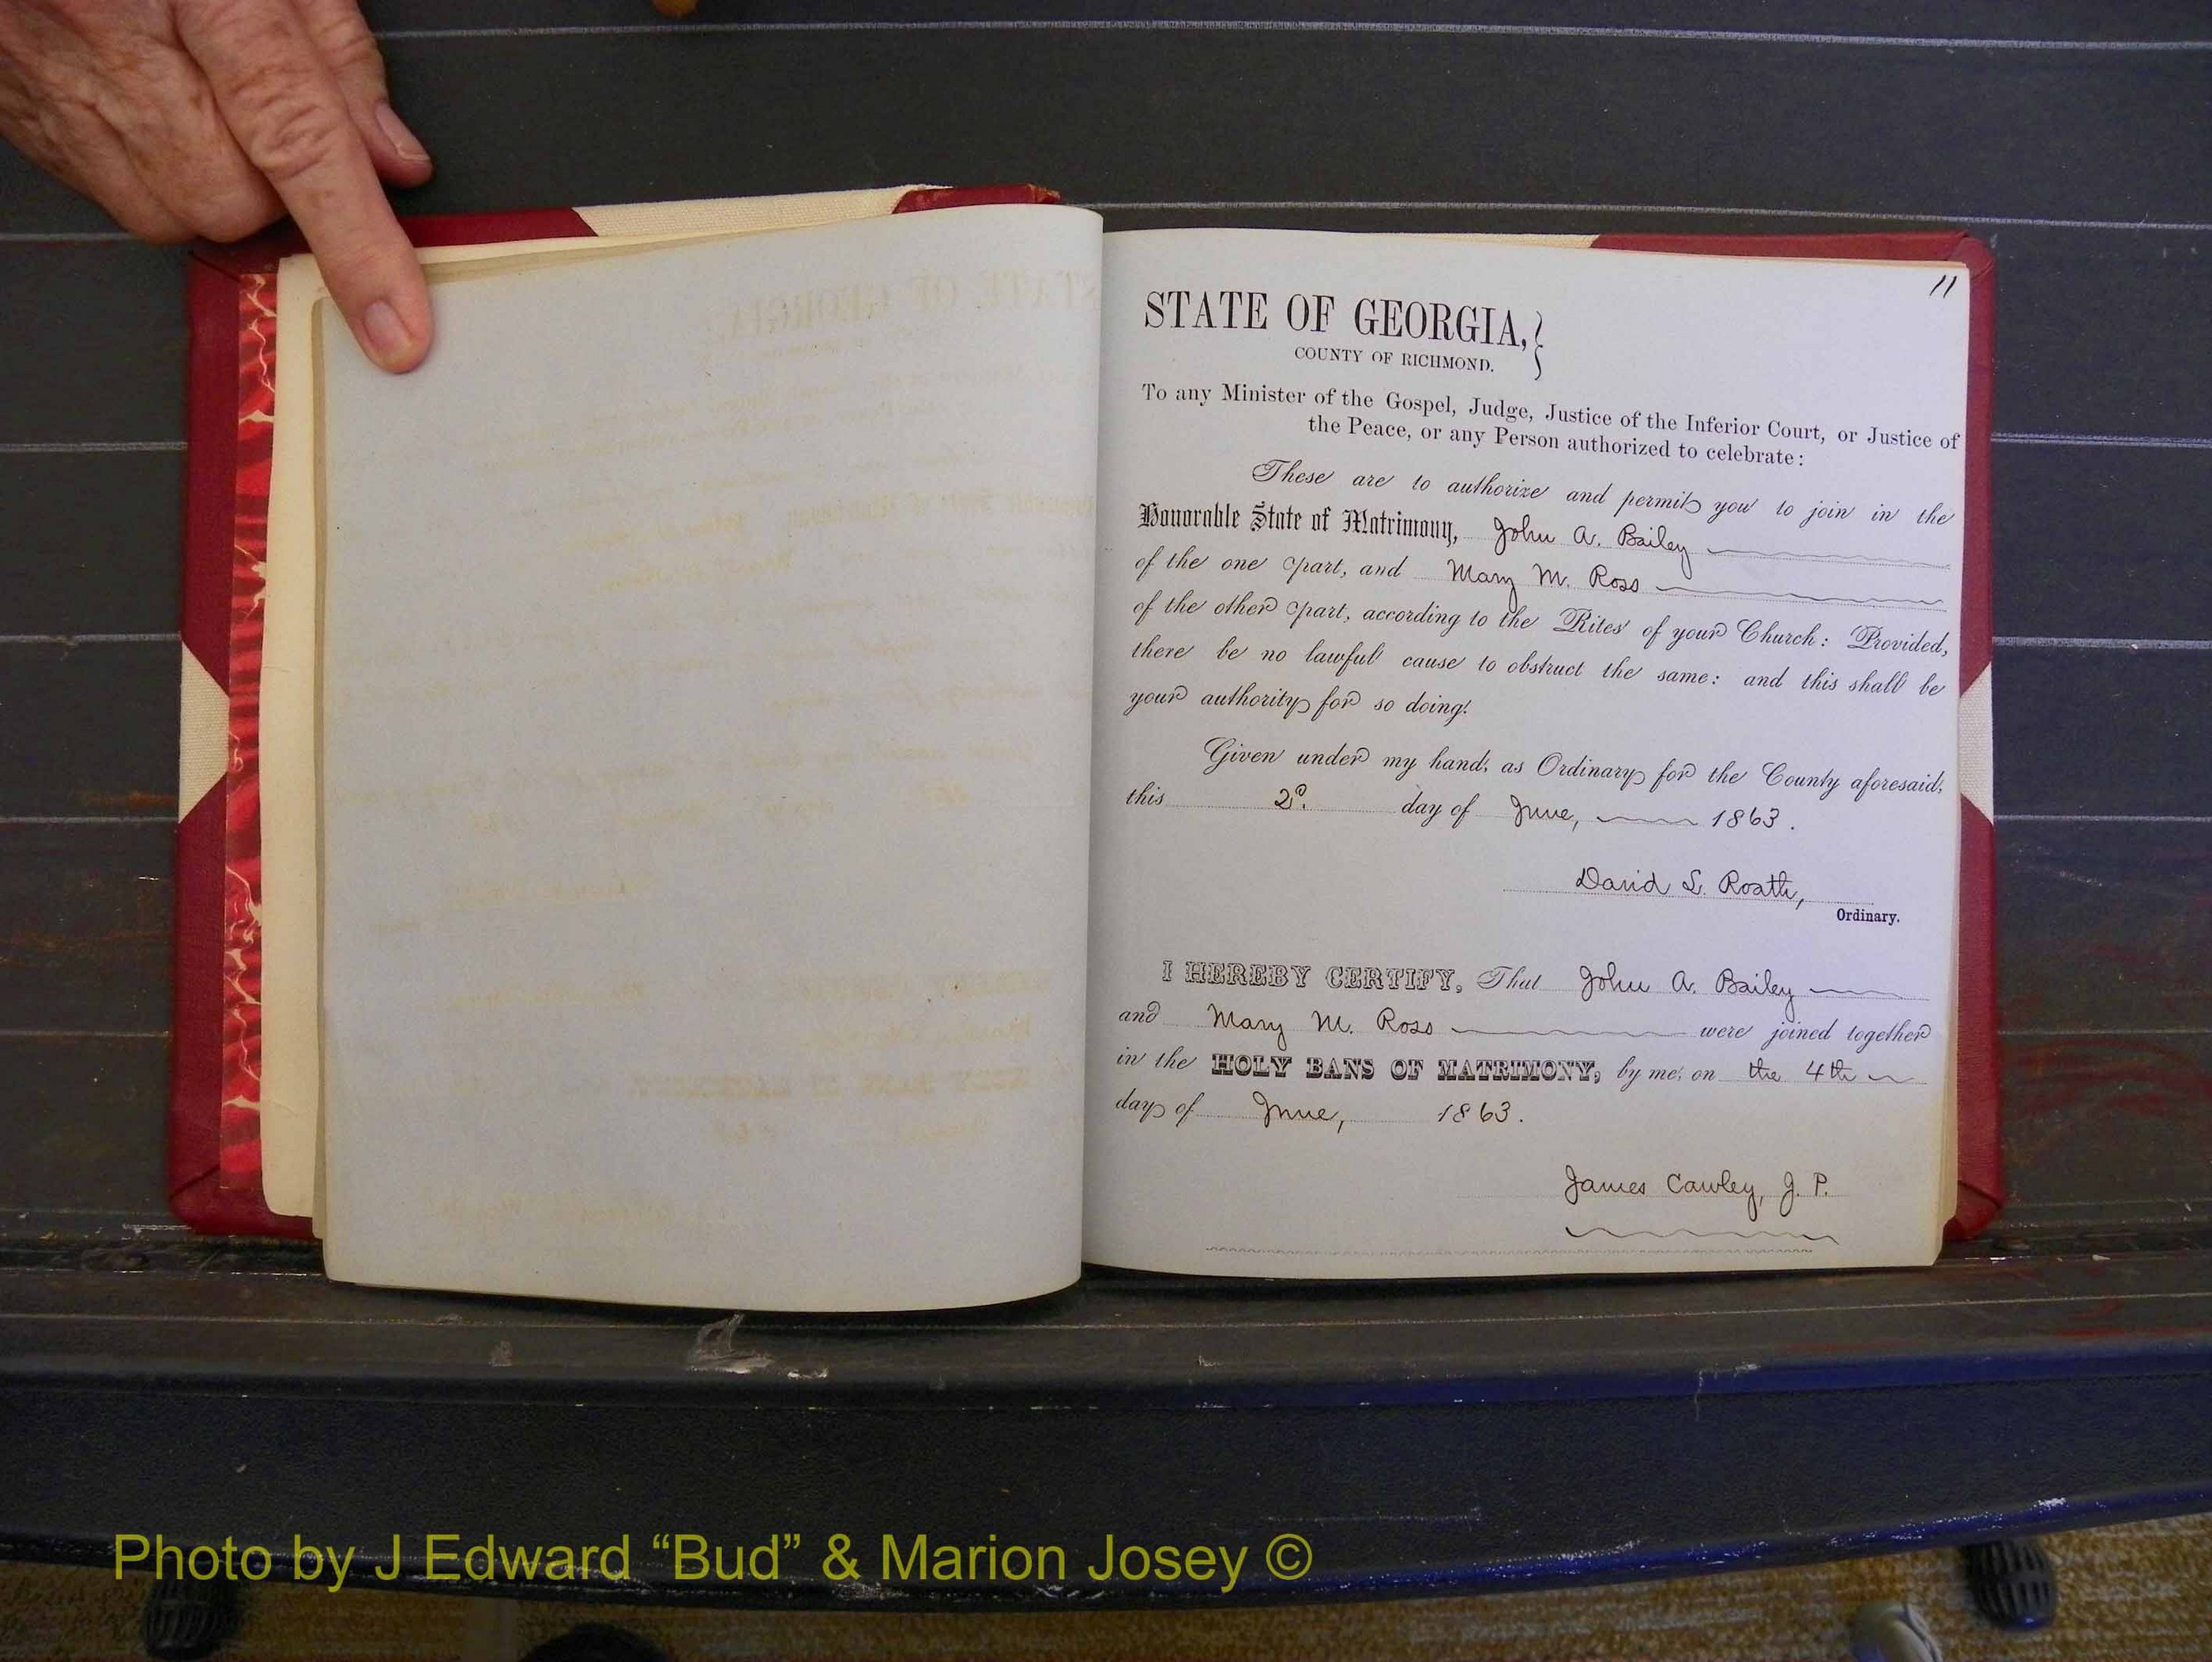 11
STATE OF GEORGIA,
COUNTY OF RICHMOND.
To any Minister of the Gospel, Judge, Justice of the Inferior Court, or Justice of
the Peace, or any Person authorized to celebrate:
These are to authorize and permit you to join in the
Honorable State of Matrimony, John A. Bailey
of the one part, and Mary M. Ross
of the other part, according to the Rites of your Church: Provided,
there be no lawful cause to obstruct the same: and this shall be
your authority for so doing.
Given under my hand, as Ordinary for the County aforesaid,
this 2d. day of June, 1863.
David L. Roath,
Ordinary.
I HEREBY CERTIFY, That John A. Bailey
and Mary M. Ross were joined together
in the HOLY BANS OF MATRIMONY, by me, on the 4th
day of June, 1863.
James Cawley, J. P.
Photo by J Edward “Bud” & Marion Josey ©